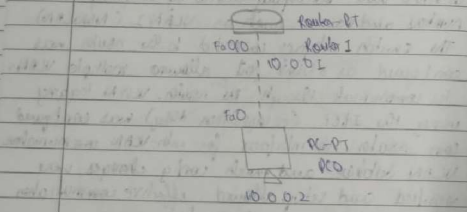 Router-PT
Fa0/0 Router 1
10.0.0.1
Fa0
PC-PT
PC0
10.0.0.2